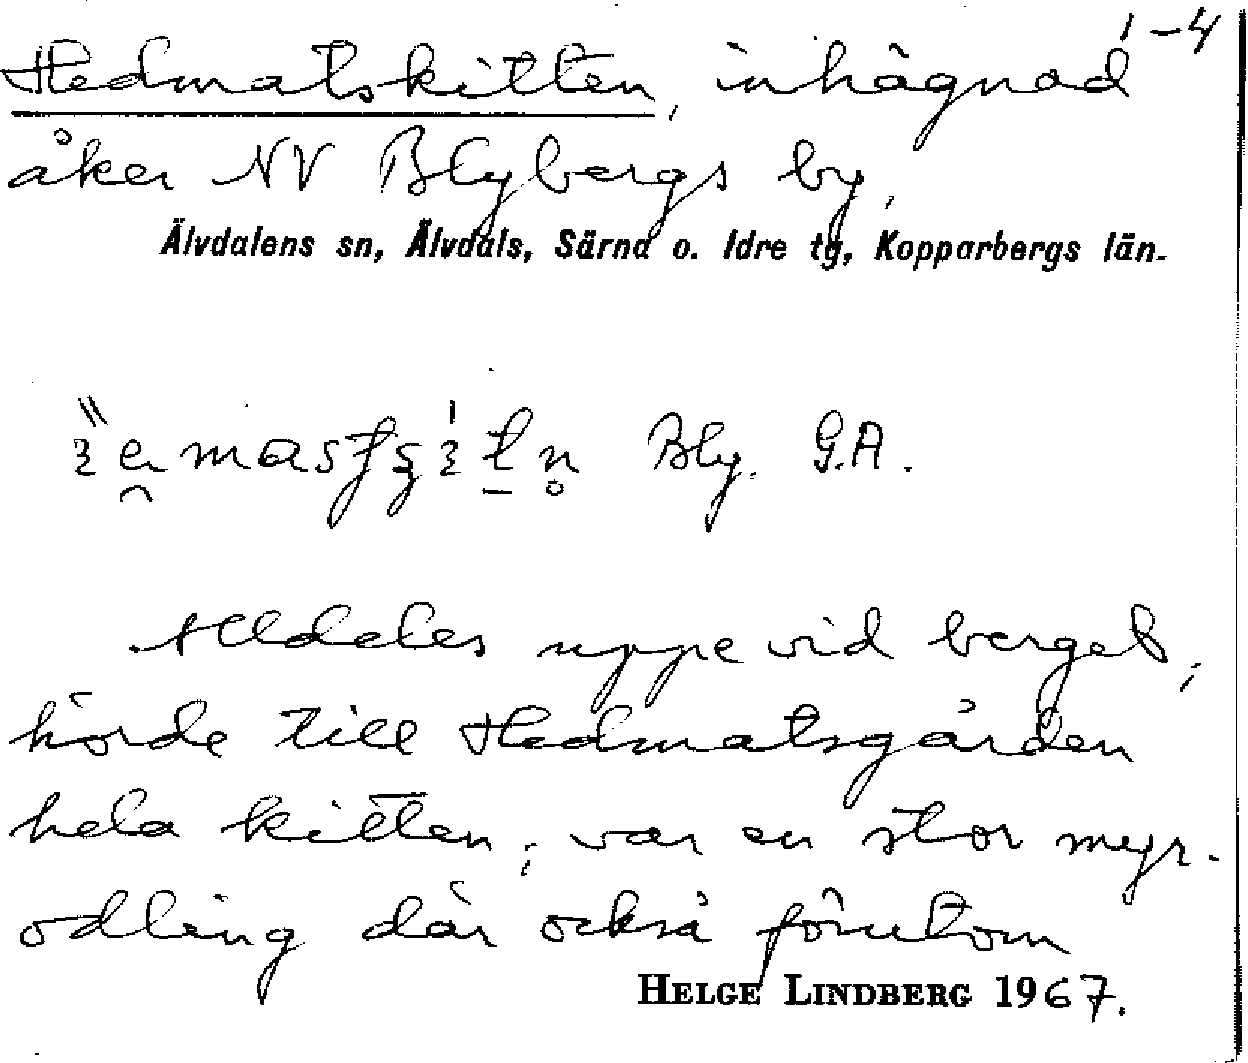 1-4
Hedmatskitten, inhägnad
åker NV Blybergs by,
Älvdalens sn, Älvdals, Särna o. Idre tg, Kopparbergs län.
Bly. G.A.
Alldeles uppe vid berget;
hörde till Hedmatsgården
hela kitten; var en stor myr-
odling där också förutom
HELGE LINDBERG 1967.